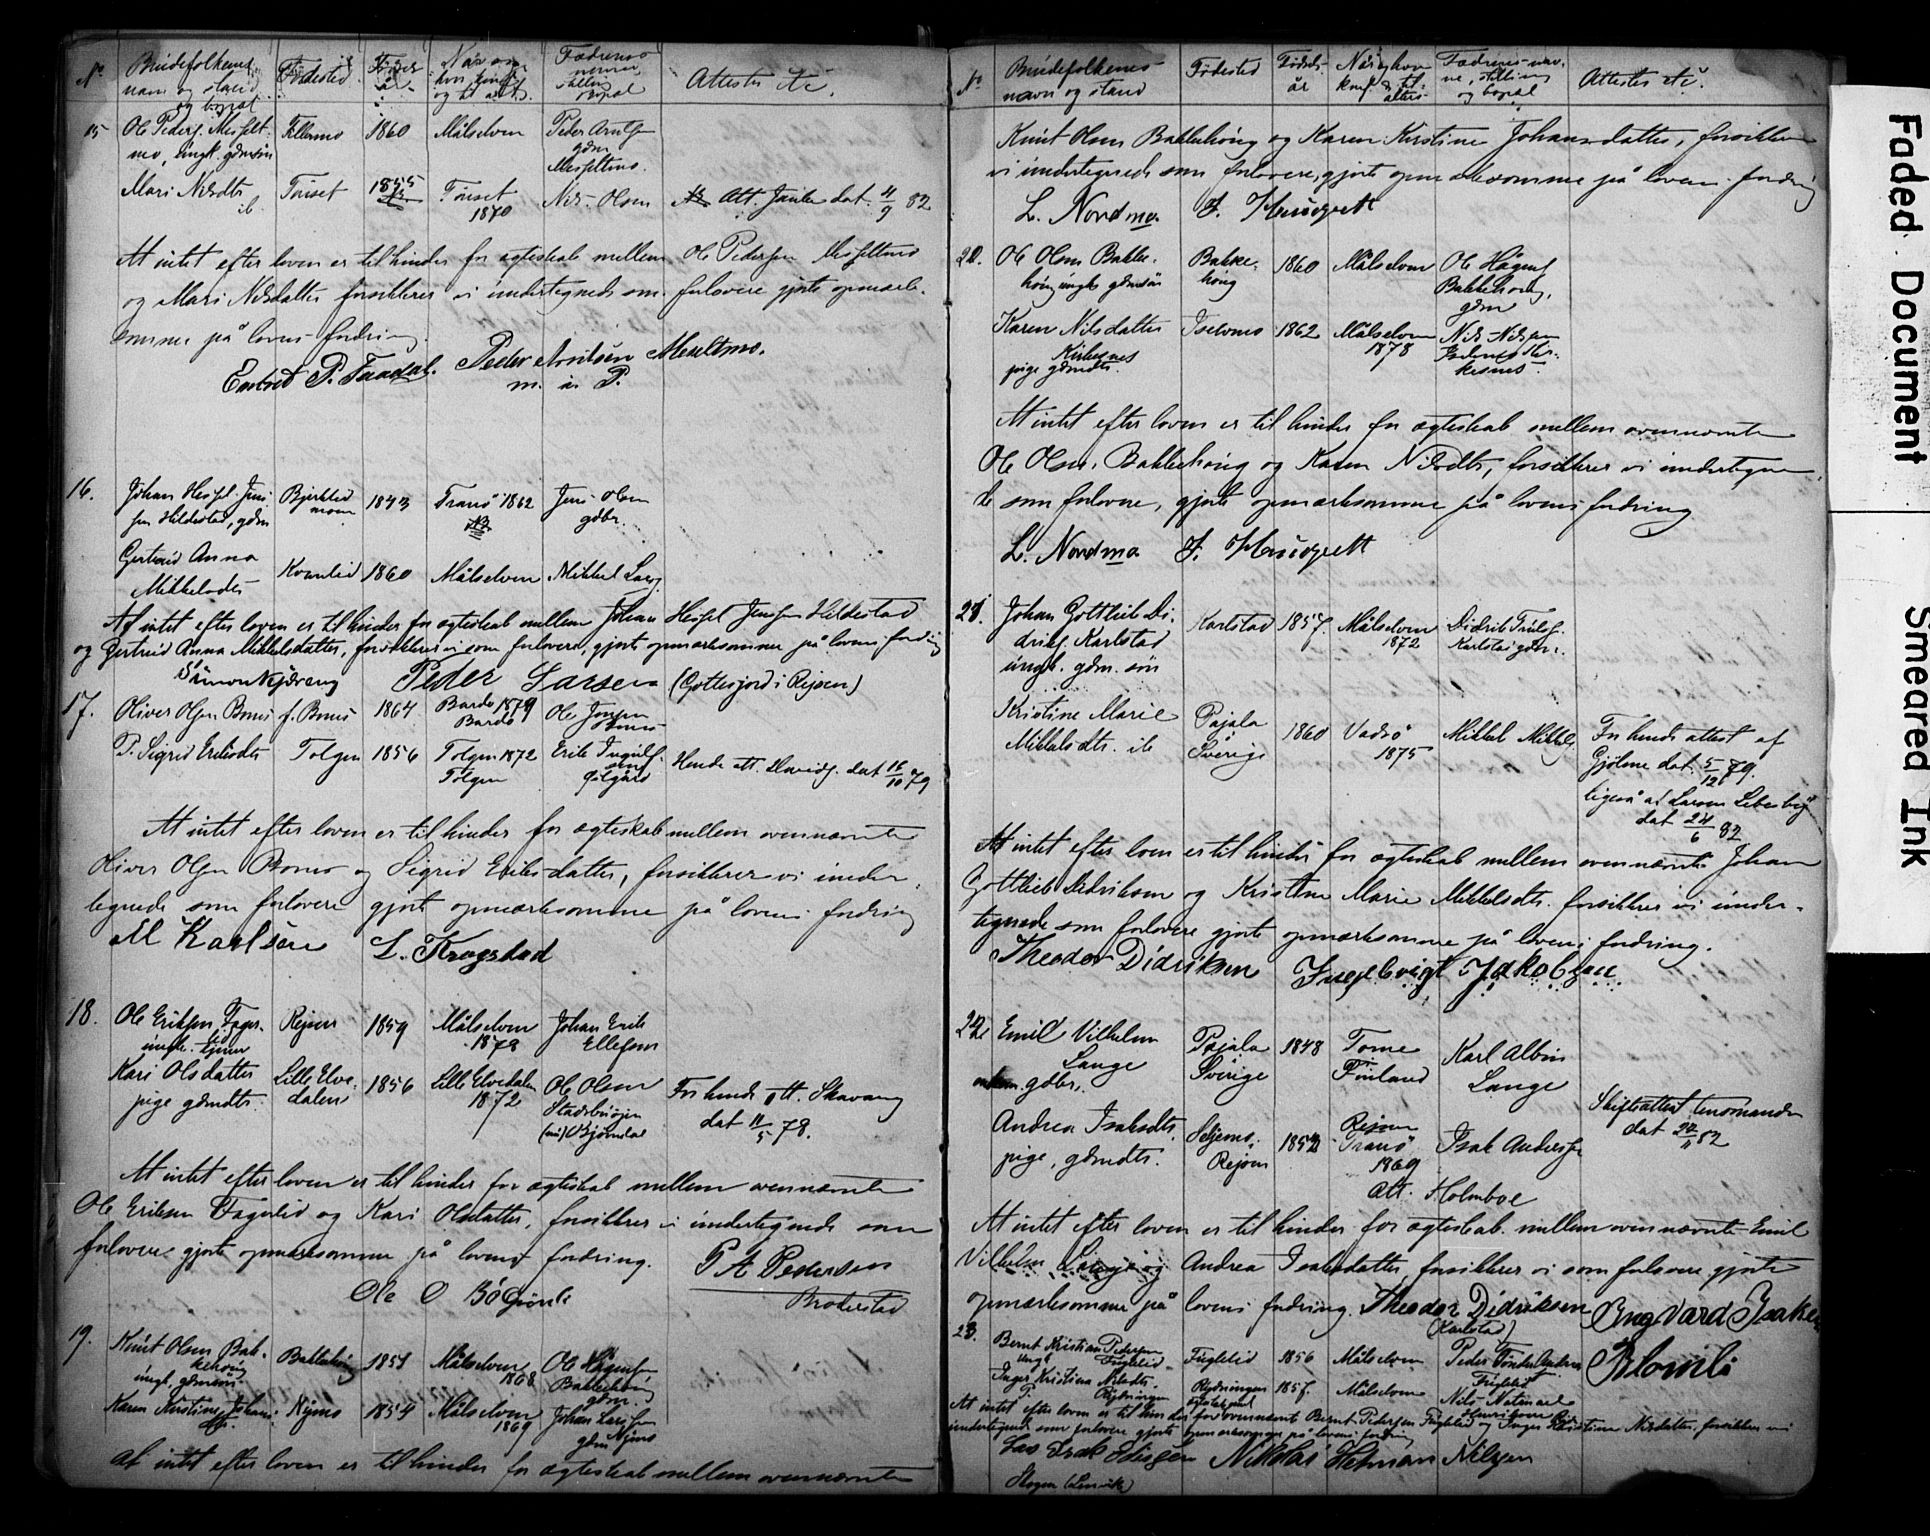 No
Brudefolkenes
navn og stand
og bopæl
Fødested
Fødsels
år
Når og
hvor konf.
og til alt.
Fædrenes
navne,
stilling
bopæl
Attester etc.
15
Ole Peders. Messelt-
mo, ungk. gdmsøn
1860
Målselven
Peder Arnts
gdm
Messeltmo.
Mari Nilsdtr
ib.
Tønset
1855
Tønset
1870
Nils Olsen
Att. dat. 4/9 82
At intet efter loven er til hinder for ægteskab mellem Ole Pedersen Messeltmo
og Mari Nilsdatter forsikkrer vi undertegnede som forlovere gjorte opmærk-
somme på lovens fordring.
Peder Arntsen Meseltmo.
m. i. P.
16.
Johan Hessel. Jens-
sen Hildestad, gdm
1843
Tranø 1862
Jens Olsen
gdbr.
Gertrud Anna
Mikkelsdtr
1860
Målselven
Mikkel Lars.
At intet efter loven er til hinder for ægteskab mellem Johan Hessel Jenssen Hildestad
og Gertrud Anna Mikkelsdatter, forsikkrer vi som forlovere, gjorte opmærksomme på lovens fordring
Simon Kjæreng Peder Larsen (Gottesjord i Reisen)
17.
Oliver Olsen Bones
f. Bones
1864
Bardo 1879
Bardo
Ole Jonsen
Bones
P. Sigrid Eriksdtr
Tolgen
1856
Tolgen 1872
Tolgen
Erik Ingulf-
sen
Hendes att. dat 16/10 79
At intet efter loven er til hinder for ægteskab mellem ovennævnte
Oliver Olsen Bones og Sigrid Eriksdatter, forsikkrer vi under-
tegnede som forlovere gjort opmærksomme på lovens fordring
M Karlsen L. Krogstad
18.
Ole Eriksen Fager-
lid
ungk.
1859
Målselven
1878
Johan Erik
Ellefsen
Kari Olsdatter
pige gdmdtr.
Lille Elve-
dalen
1856
Lille Elvedalen
1872
Ole Olsen
Stadsbuøien
(nu) Bjørndal
For hende att. Skavang
dat 11/5 78.
At intet efter loven er til hinder for ægteskab mellem ovennævnte
Ole Eriksen Fagerlid og Kari Olsdatter, forsikkrer vi undertegnede som
forlovere gjorte opmærksomme på lovens fordring.
P A Pedersen
Ole O
19.
Knut Olsen Bak-
kehaug
ungk. gdmsøn
Bakkehaug
1851
Målselven
1868
Ole Hågens
Bakkehaug
gdm.
Karen Kirstine Johans-
dtr.
Nymo
1854
Målselven
1869
Johan Larssen
gdm Nymo
At intet efter loven er til hinder for ægteskab mellem ovennævnte
No
Brudefolkenes
navn og stand
Fødested
Fødsels-
år
Når og hvor
konf. & til
alters
Fædrenes nav-
ne, stilling
og bopæl
Attester etc.
Knut Olsen Bakkehaug og Karen Kirstine Johansdatter, forsikkrer
vi undertegnede som forlovere, gjorte opmærksomme på lovens fordring
L. Nordmo
20.
Ole Olsen Bakke-
haug ungk. gdmsøn
Bakke-
haug
1860
Målselven
Ole Hågens
Bakkehaug,
gdm
Karen Nilsdatter
Kirkesnes
pige gdmdtr.
Iselvmo
1862
Målselven
1878
Nils Nilssen
Kir-
kesnes.
At intet efter loven er til hinder for ægteskab mellem ovennævnte
Ole Olsen Bakkehaug og Karen Nilsdtr, forsikkrer vi undertegne-
de som forlovere, gjorte opmærksomme på lovens fordring
L. Nordmo
21.
Johan Gottlieb Di-
driks. Karlstad
ungk. gdm. søn
Karlstad
1857.
Målselven
1872
Didrik
Karlstad gdbr.
Kristine Marie
Mikkelsdtr. ib
Pajala
Sverige
1860
Vadsø
1875
Mikkel Mikkels.
For hende attest af
Gjølme dat. 5/12 79.
ligeså af Larsen Lebesby
dat 24/6 82
At intet efter loven er til hinder for ægteskab mellem ovennævnte Johan
Gottlieb Didriksen og Kristine Marie Mikkelsdtr. forsikkrer vi under-
tegnede som forlovere gjorte opmærksomme på lovens fordring.
Theodor Didriksen Ingebrigt Jakobsen
22.
Emil Vilhelm
Lange
enkem. gdbr.
Pajala
Sverige
1848
Torne
Finland
Karl Albin
Lange
Skifteattest lensmanden
dat 82
Andrea Isaksdtr.
pige, gdmdtr.
Seljemo,
Reisen
1852
Reisen
Tranø
1869
Att. Holmboe
Isak Anders.
At intet efter loven er til hinder for ægteskab mellem ovennævnte Emil
Vilhelm Lange og Andrea Isaksdatter, forsikkrer vi som forlovere gjorte
opmærksomme på lovens fordring. Theodor Didriksen Ingvard Isaksen
(Karlstad) Blomli
23.
Bernt Kristian Pedersen
ungk. Fuglelid
Fuglelid
1856
Målselven
Peder Tønder Anders
Fuglelid
Inger Kristina Nilsdtr.
P. Rydningen
Rydningen
1857.
Målselven
Nils
Henriksen
At intet efter loven er til hinder for ovennævnte Bernt Pedersen Fuglelid og Inger Kristina Nilsdatter, forsikkrer vi
undertegnede som forlovere gjorte opmærksomme på lovens fordring
Lars Isak Nikolai Herman Nilsen
Faded Document
Smeared Ink